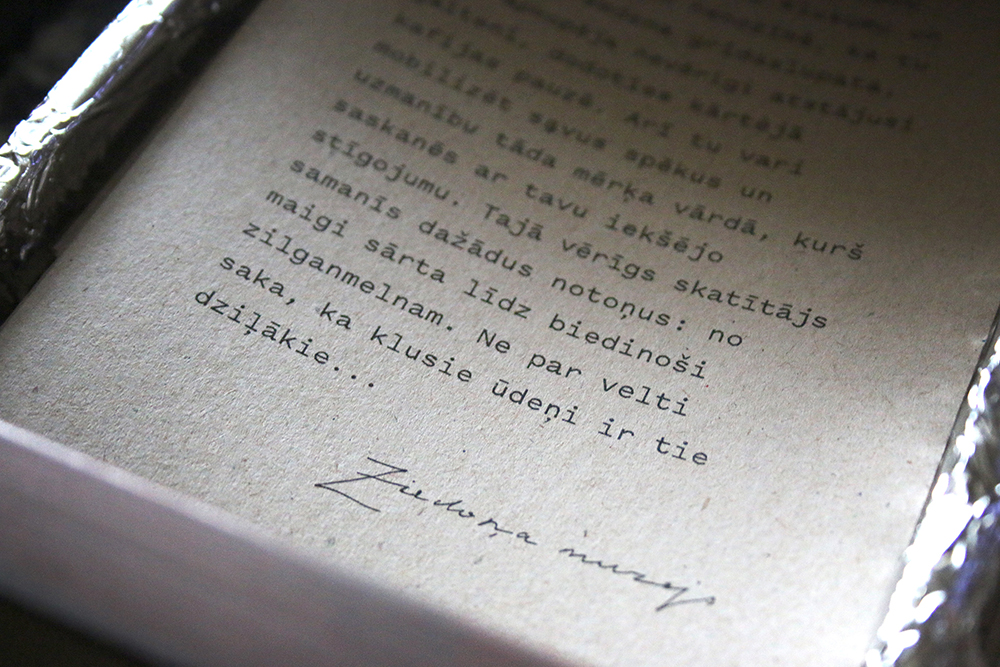 grīdaslupatā,
nevērīgi atstājusi
dodoties kārtējā
kafijas pauzē. Arī tu vari
mobilizēt savus spēkus un
uzmanību tāda mērķa vārdā, kurš
saskanēs ar tavu iekšējo
stīgojumu. Tajā vērīgs skatītājs
samanīs dažādus notoņus: no
maigi sārta līdz biedinoši
zilganmelnam. Ne par velti
saka, ka klusie ūdeņi ir tie
dziļākie...
Ziedoņa muzejs